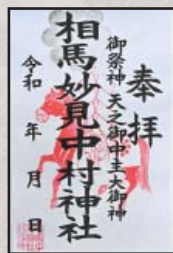 奉拝
御祭神 天之御中主大御神
相馬妙見中村神社
令和 年 月 日